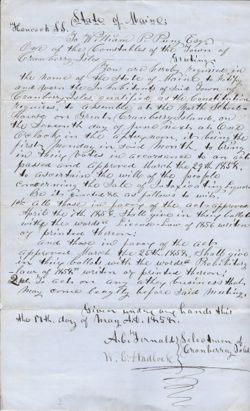 State of Maine;
Hancock S.S.
To William P. Preble Esqr.
One of the Constables of the Town of
Cranberry Isles Greeting:
You are hereby required in
the name of the State of Maine to Notify
and warn the Inhabitants of said Town of
Cranberry Isles, qualified as the Constitution
requires, to assemble at the North School
House on Great Cranberry Island, on
the Seventh day of June next at One
Oclock in the afternoon, it being the
first Monday in said Month to bring
in their votes in accordance to an act
passed and approved March the 29th 1858
to ascertain the will of the people
concerning the Sale of Intoxicating liquors
1st All those in favor of the act approved
April the 7th 1856, shall give in their ballots
with the words License Law of 1856 written
or printed thereon;
And those in favor of the act
approved March the 25th 1858, shall give
in their ballot with the words Prohibitory
Law of 1858" written or printed thereon;
2nd To act on any other business that
may come legally before said Meeting.
Given under our hands this
the 17th day of May Ad. 1858.
A.C. Fernald Selectmen of
W. E. Hadlock Cranberry Isles